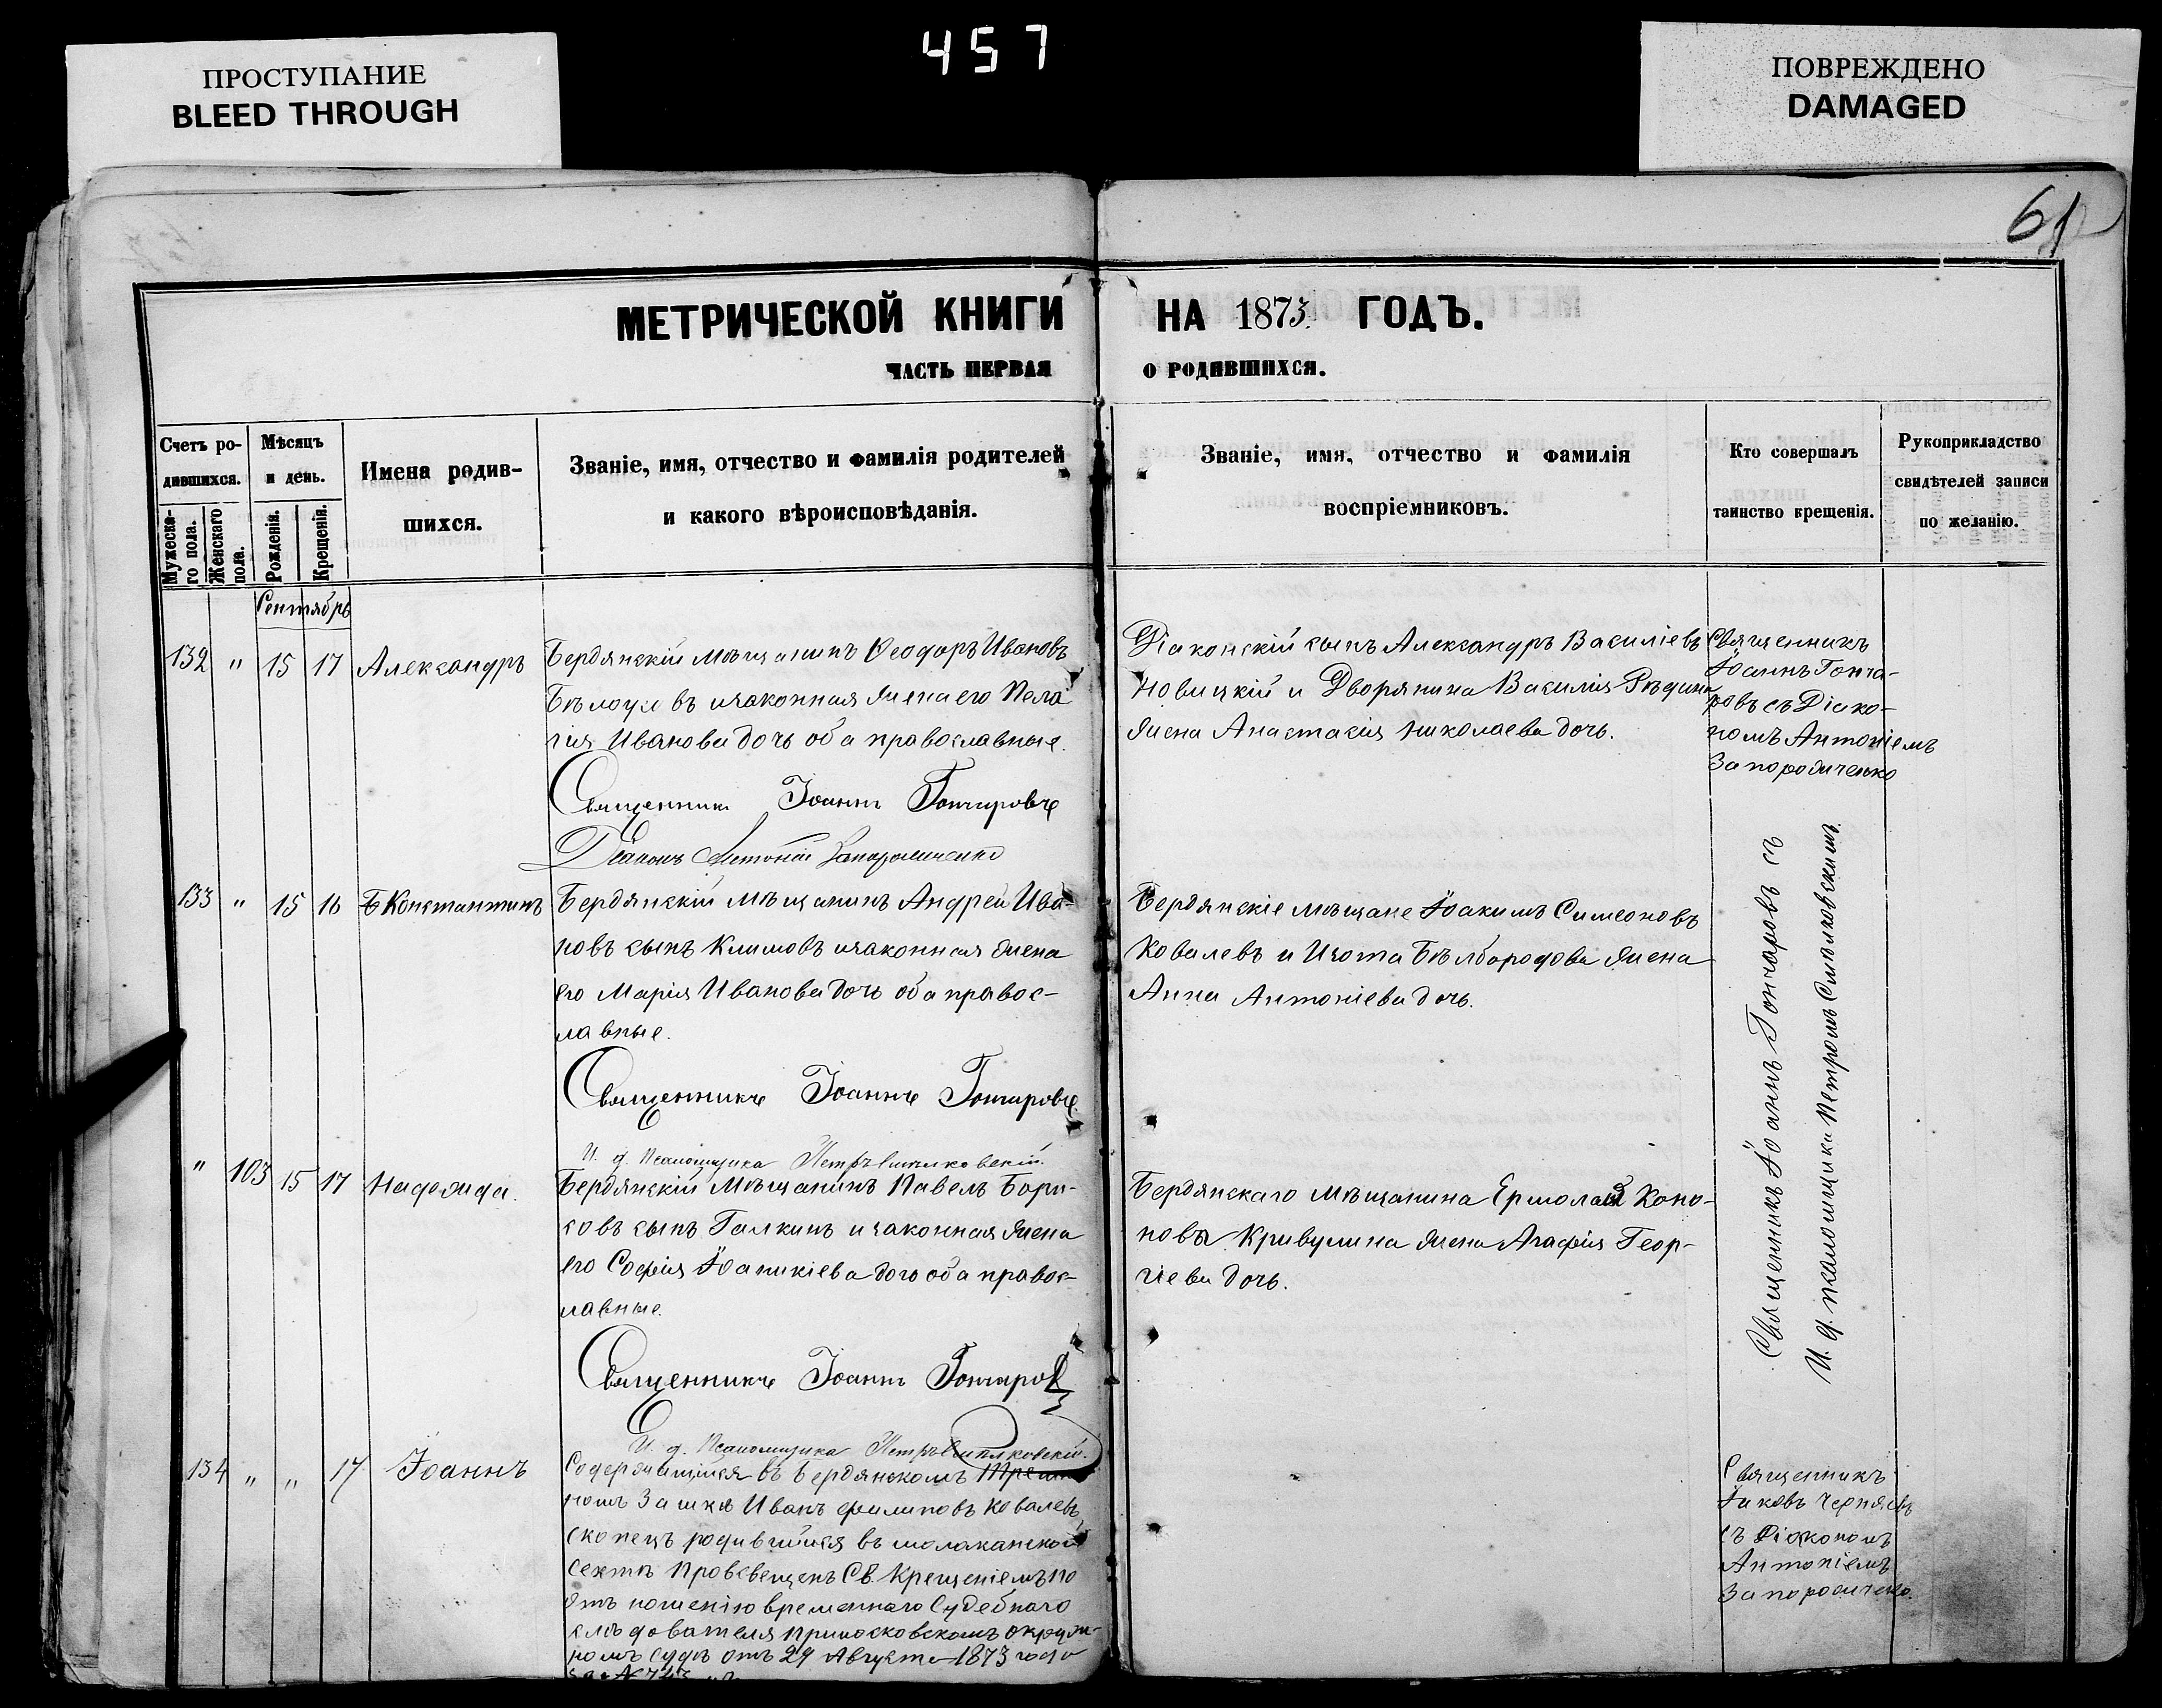 457
ПРОСТУПАНИЕ
BLEED THROUGH
ПОВРЕЖДЕНО
DAMAGED
61
МЕТРИЧЕСКОЙ КНИГИ НА 1873 ГОДЪ.
ЧАСТЬ ПЕРВАЯ О РОДИВШИХСЯ.
Счетъ ро-
дившихся.
Мужеска-
го пола.
Женскаго
пола.
Мѣсяцъ
и день.
Рожденія.
Крещенія.
Имена родив-
шихся.
Званіе, имя, отчество и фамилія родителей
и какого вѣроисповѣданія.
Званіе, имя, отчество и фамилія
воспріемниковъ.
Кто совершалъ
таинство крещенія.
Рукоприкладство
свидѣтелей записи
по желанію.
Сентябрь
132 " 15 17 Александръ
Бердянскій мѣщанинъ Ѳеодоръ Ивановъ
въ изаконная жена его Пела
гія Иванова дочь оба православные.
Священникъ Іоаннъ Гончаровъ
Діаконъ Антоній Запорожченко
Діаконскій сынъ Александръ Василіевъ
Новицкій и Дворянина Василія
жена Анастасія Николаева дочь.
Священникъ
Іоаннъ Гонча-
ровъ съ Діако-
номъ Антоніемъ
Запорожченко
133 " 15 16 Константинъ
Бердянскій мѣщанинъ Андрей Ива-
новъ сынъ Климовъ изаконная жена
его Марія Иванова дочь оба правос-
лавные.
Священникъ Іоаннъ Гончаровъ
И. д. Псаломщика Петръ Смолковскій.
Бердянскіе мѣщане Іоакимъ Симеоновъ
Ковалевъ и Изота Бѣлбородова жена
Анна Антоніева дочь.
Священникъ Іоаннъ Гончаровъ съ
И. д. псаломщика Петромъ Смолковскимъ
" 103 15 17 Надежда.
Бердянскій Мѣщанинъ Павелъ Бори-
совъ сынъ Галкинъ и законная жена
его Софія Іоаникіева дочь оба правос-
лавные.
Священникъ Іоаннъ Гончаровъ
И. д. Псаломщика Петръ Смолковскій.
Бердянскаго мѣщанина Ермолая Коно-
нова Кривулина жена Агафія Геор-
гіева дочь.
134 " " 17 Іоаннъ
Содержащійся въ Бердянскомъ Тюрем
номъ Замкѣ Иванъ Филиповъ Ковалевъ
скопецъ родившійся въ молаканской
сектѣ Просвещенъ Св. Крещеніемъ по
отношенію временнаго Судебнаго
слѣдователя при московскомъ окруж-
номъ судѣ отъ 29 Августа 1873 года
за №
Священникъ
Іаковъ Чернявъ
съ Діакономъ
Антоніемъ
Запорожченко.